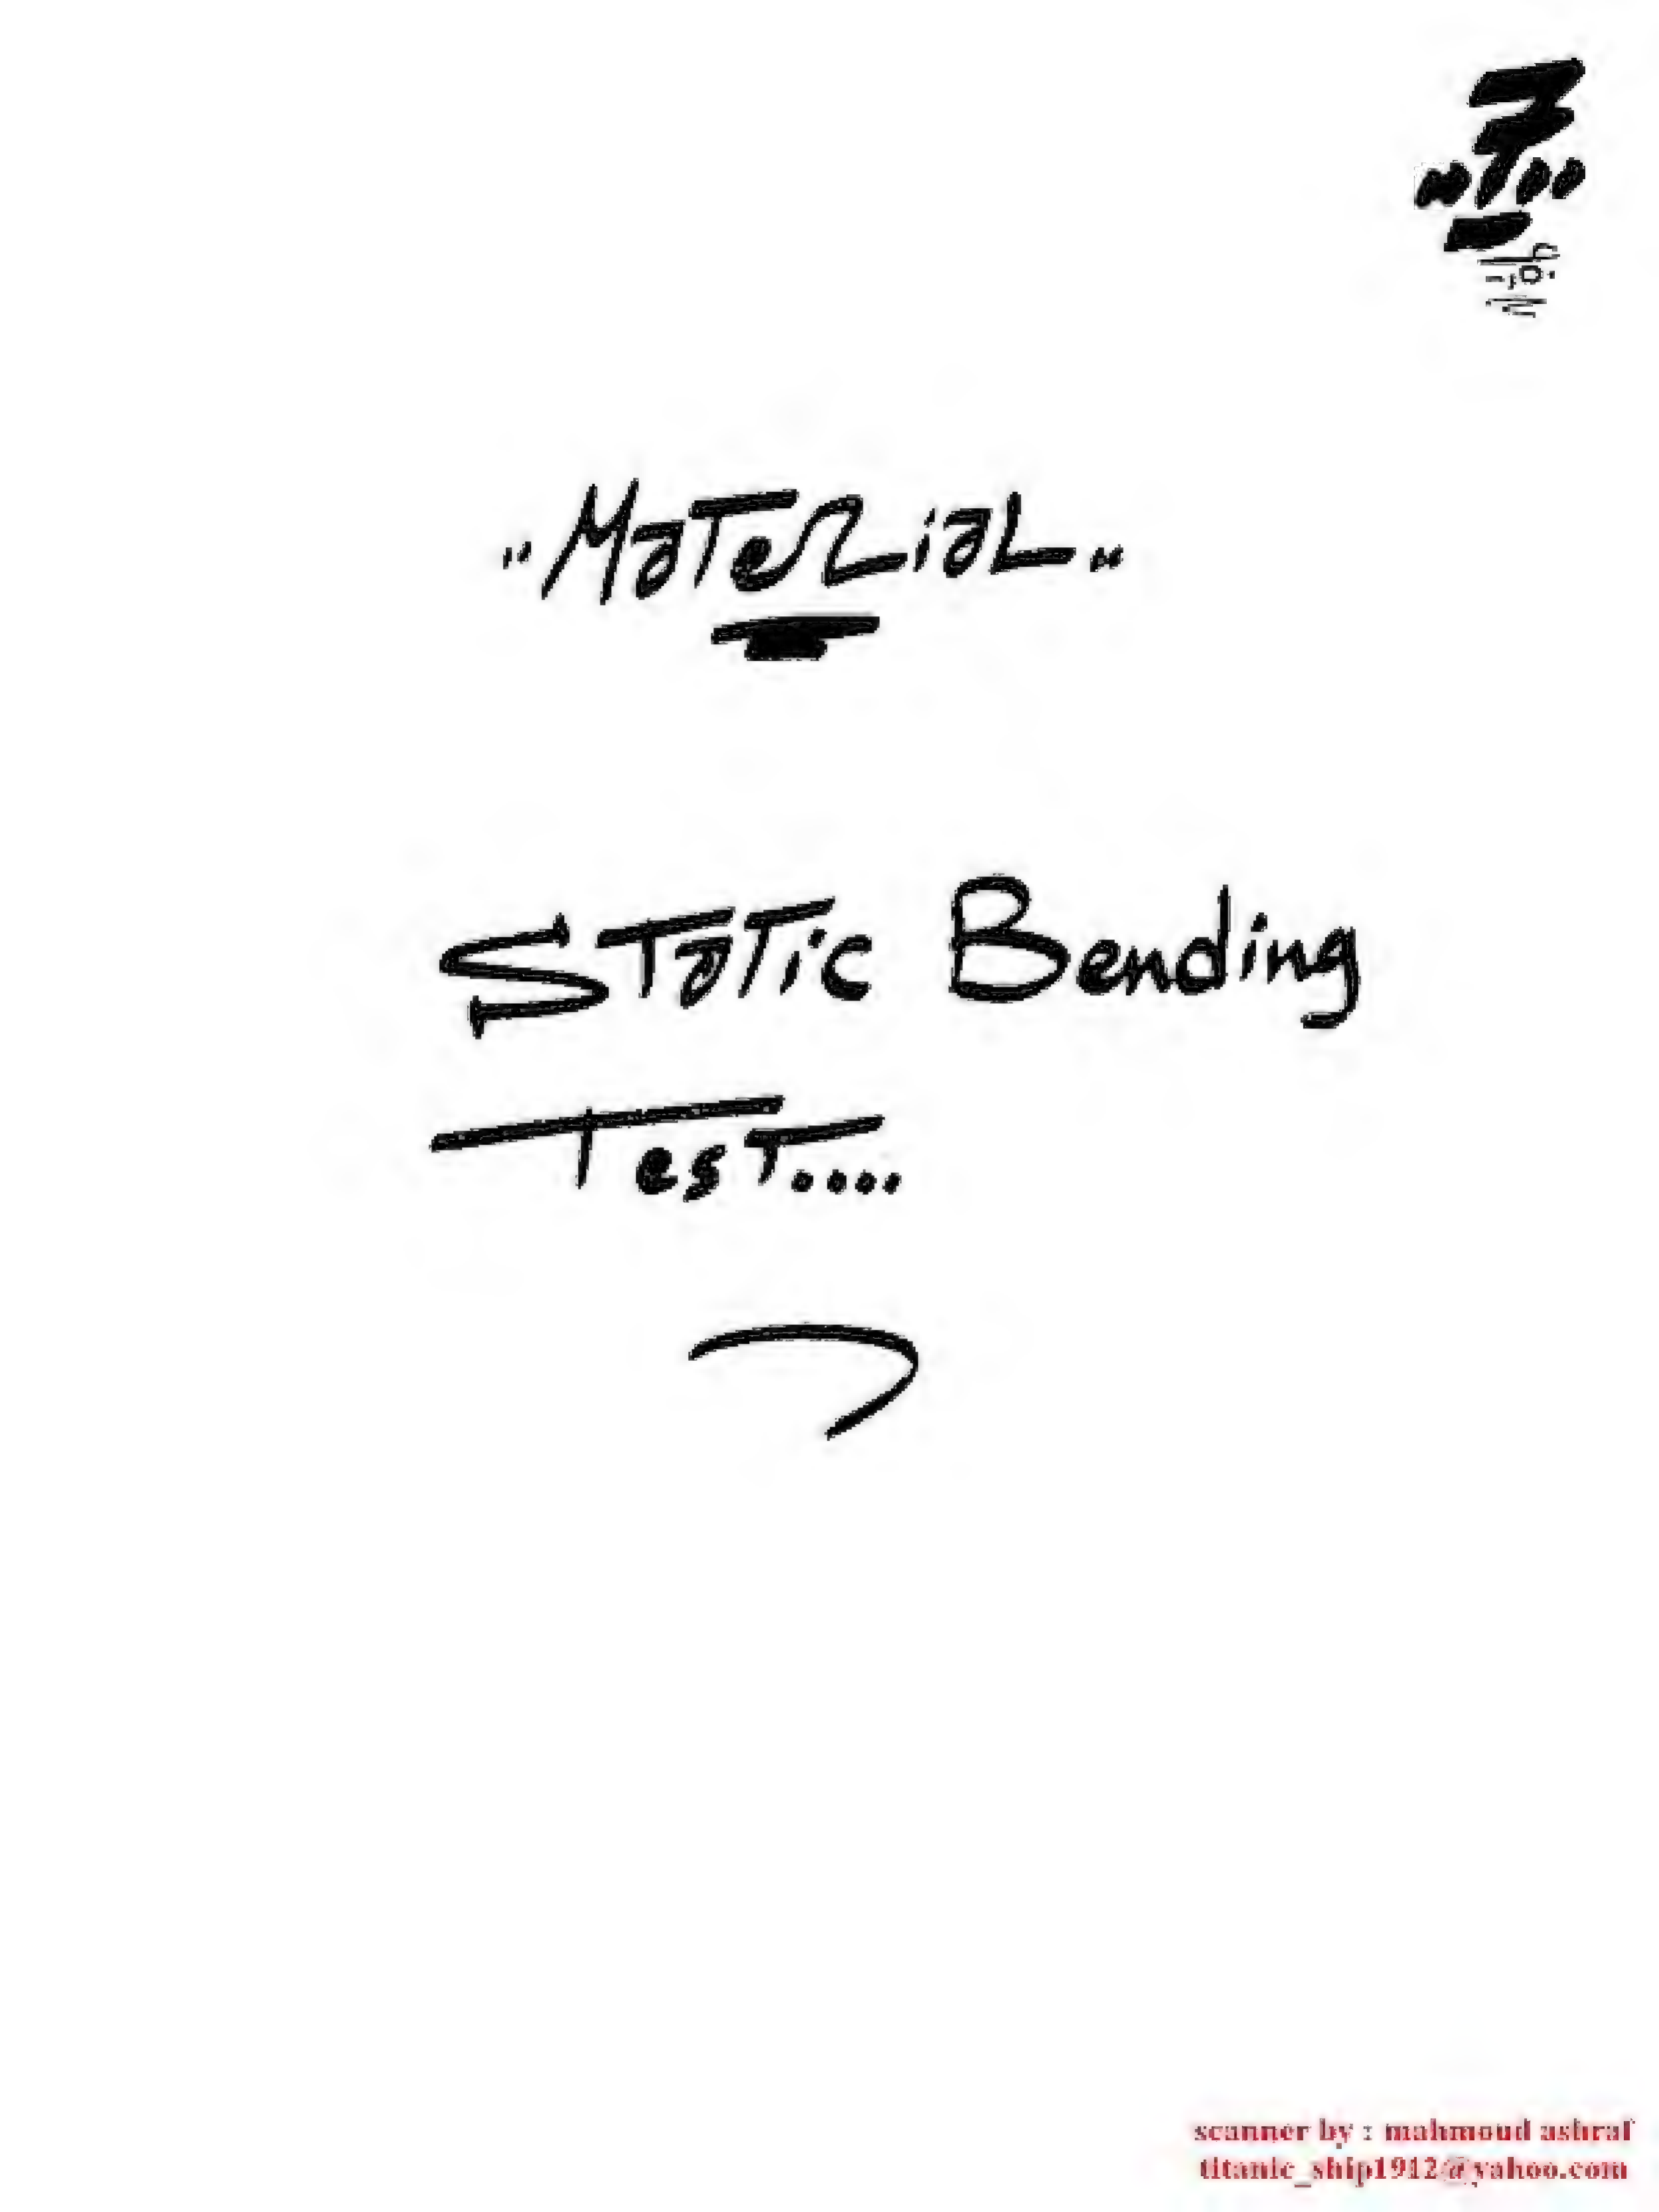 "Material"
Static Bending
Test....
scanner by : mahmoud ashraf
titanic_ship1912@yahoo.com